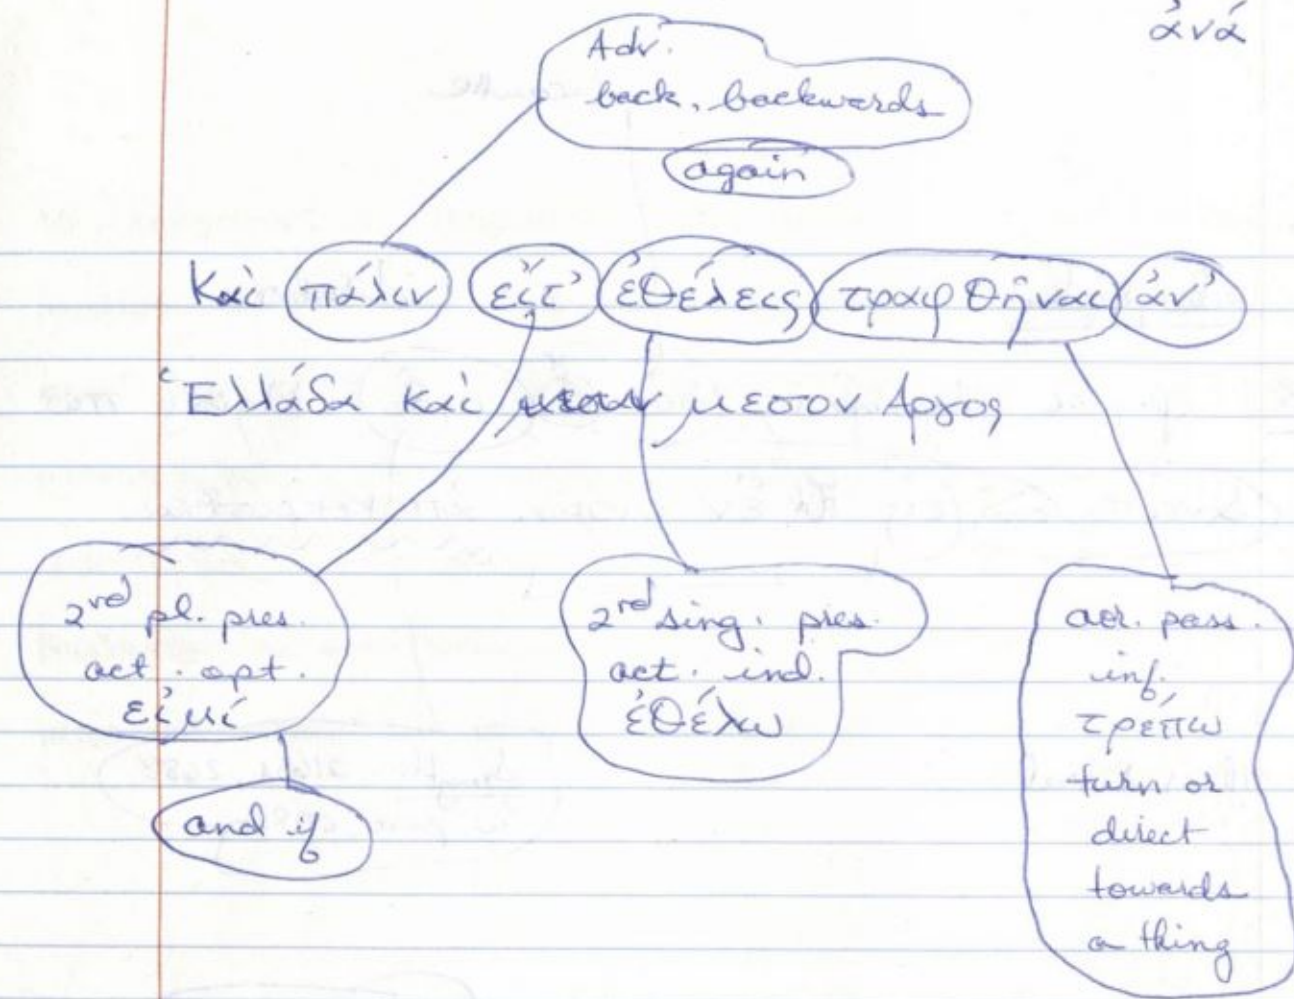 ἀνά
Adv.
back, backwards
again
Καὶ πάλιν εἴτ' ἐθέλεις τραφθῆναι ἀν'
Ἑλλάδα καὶ μεσον Αργος
2nd pl. pres.
act. opt.
εἰμί
and if
2nd sing. pres.
act. ind.
ἐθέλω
aor. pass.
inf.
τρέπω
turn or
direct
towards
a thing